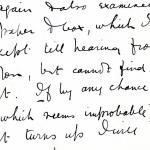 again & also examined
paper & box, which I
kept till hearing from
you, but cannot find
it. If by any chance
which seems improbable
it turns up I will